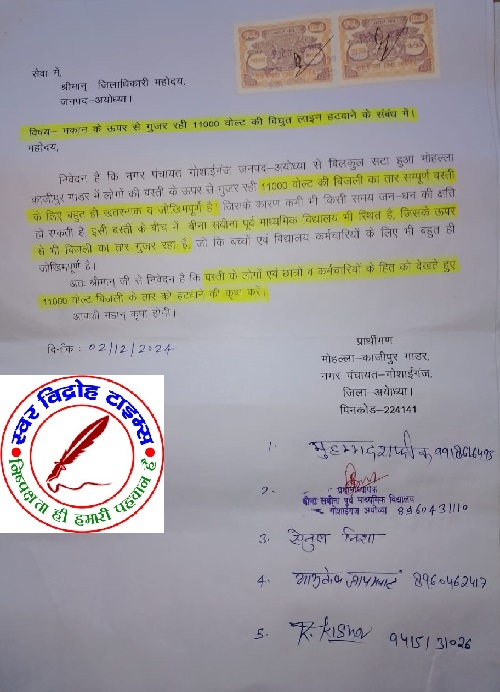 सेवा में,
श्रीमान् जिलाधिकारी महोदय,
जनपद-अयोध्या।
विषय- मकान के ऊपर से गुजर रही 11000 वोल्ट की विधुत लाइन हटवाने के संबंध में।
महोदय,
निवेदन है कि नगर पंचायत गोशाईगंज जनपद-अयोध्या से बिलकुल सटा हुआ मोहल्ला
काजीपुर गाडर में लोगों की बस्ती के ऊपर से गुजर रही 11000 वोल्ट की बिजली का तार सम्पूर्ण बस्ती
के लिए बहुत ही खतरनाक व जोखिमपूर्ण है। जिसके कारण कभी भी किसी समय जन-धन की क्षति
हो सकती है, इसी बस्ती के बीच में बीना सबीना पूर्व माध्यमिक विद्यालय भी स्थित है, जिसके ऊपर
से भी बिजली का तार गुजर रहा है, जो कि बच्चों एवं विद्यालय कर्मचारियों के लिए भी बहुत ही
जोखिमपूर्ण है।
अतः श्रीमान् जी से निवेदन है कि बस्ती के लोगों एवं छात्रों व कर्मचारियों के हित को देखते हुए
11000 वोल्ट बिजली के तार को हटवाने की कृपा करें।
आपकी महान् कृपा होगी।
दिनाँक: 02/12/2024
प्रार्थीगण
मोहल्ला-काजीपुर गाडर,
नगर पंचायत-गोशाईगंज,
जिला-अयोध्या।
पिनकोड-224141
स्वर विद्रोह टाइम्स
निष्पक्षता ही हमारी पहचान है
1. मुहम्मद शफीक
2. प्रधानाध्यापक
बीना सबीना पूर्व माध्यमिक विद्यालय
गोशाईगंज अयोध्या 8960431110
3.
4. 8960462417
5. R. Kishor 9415131026